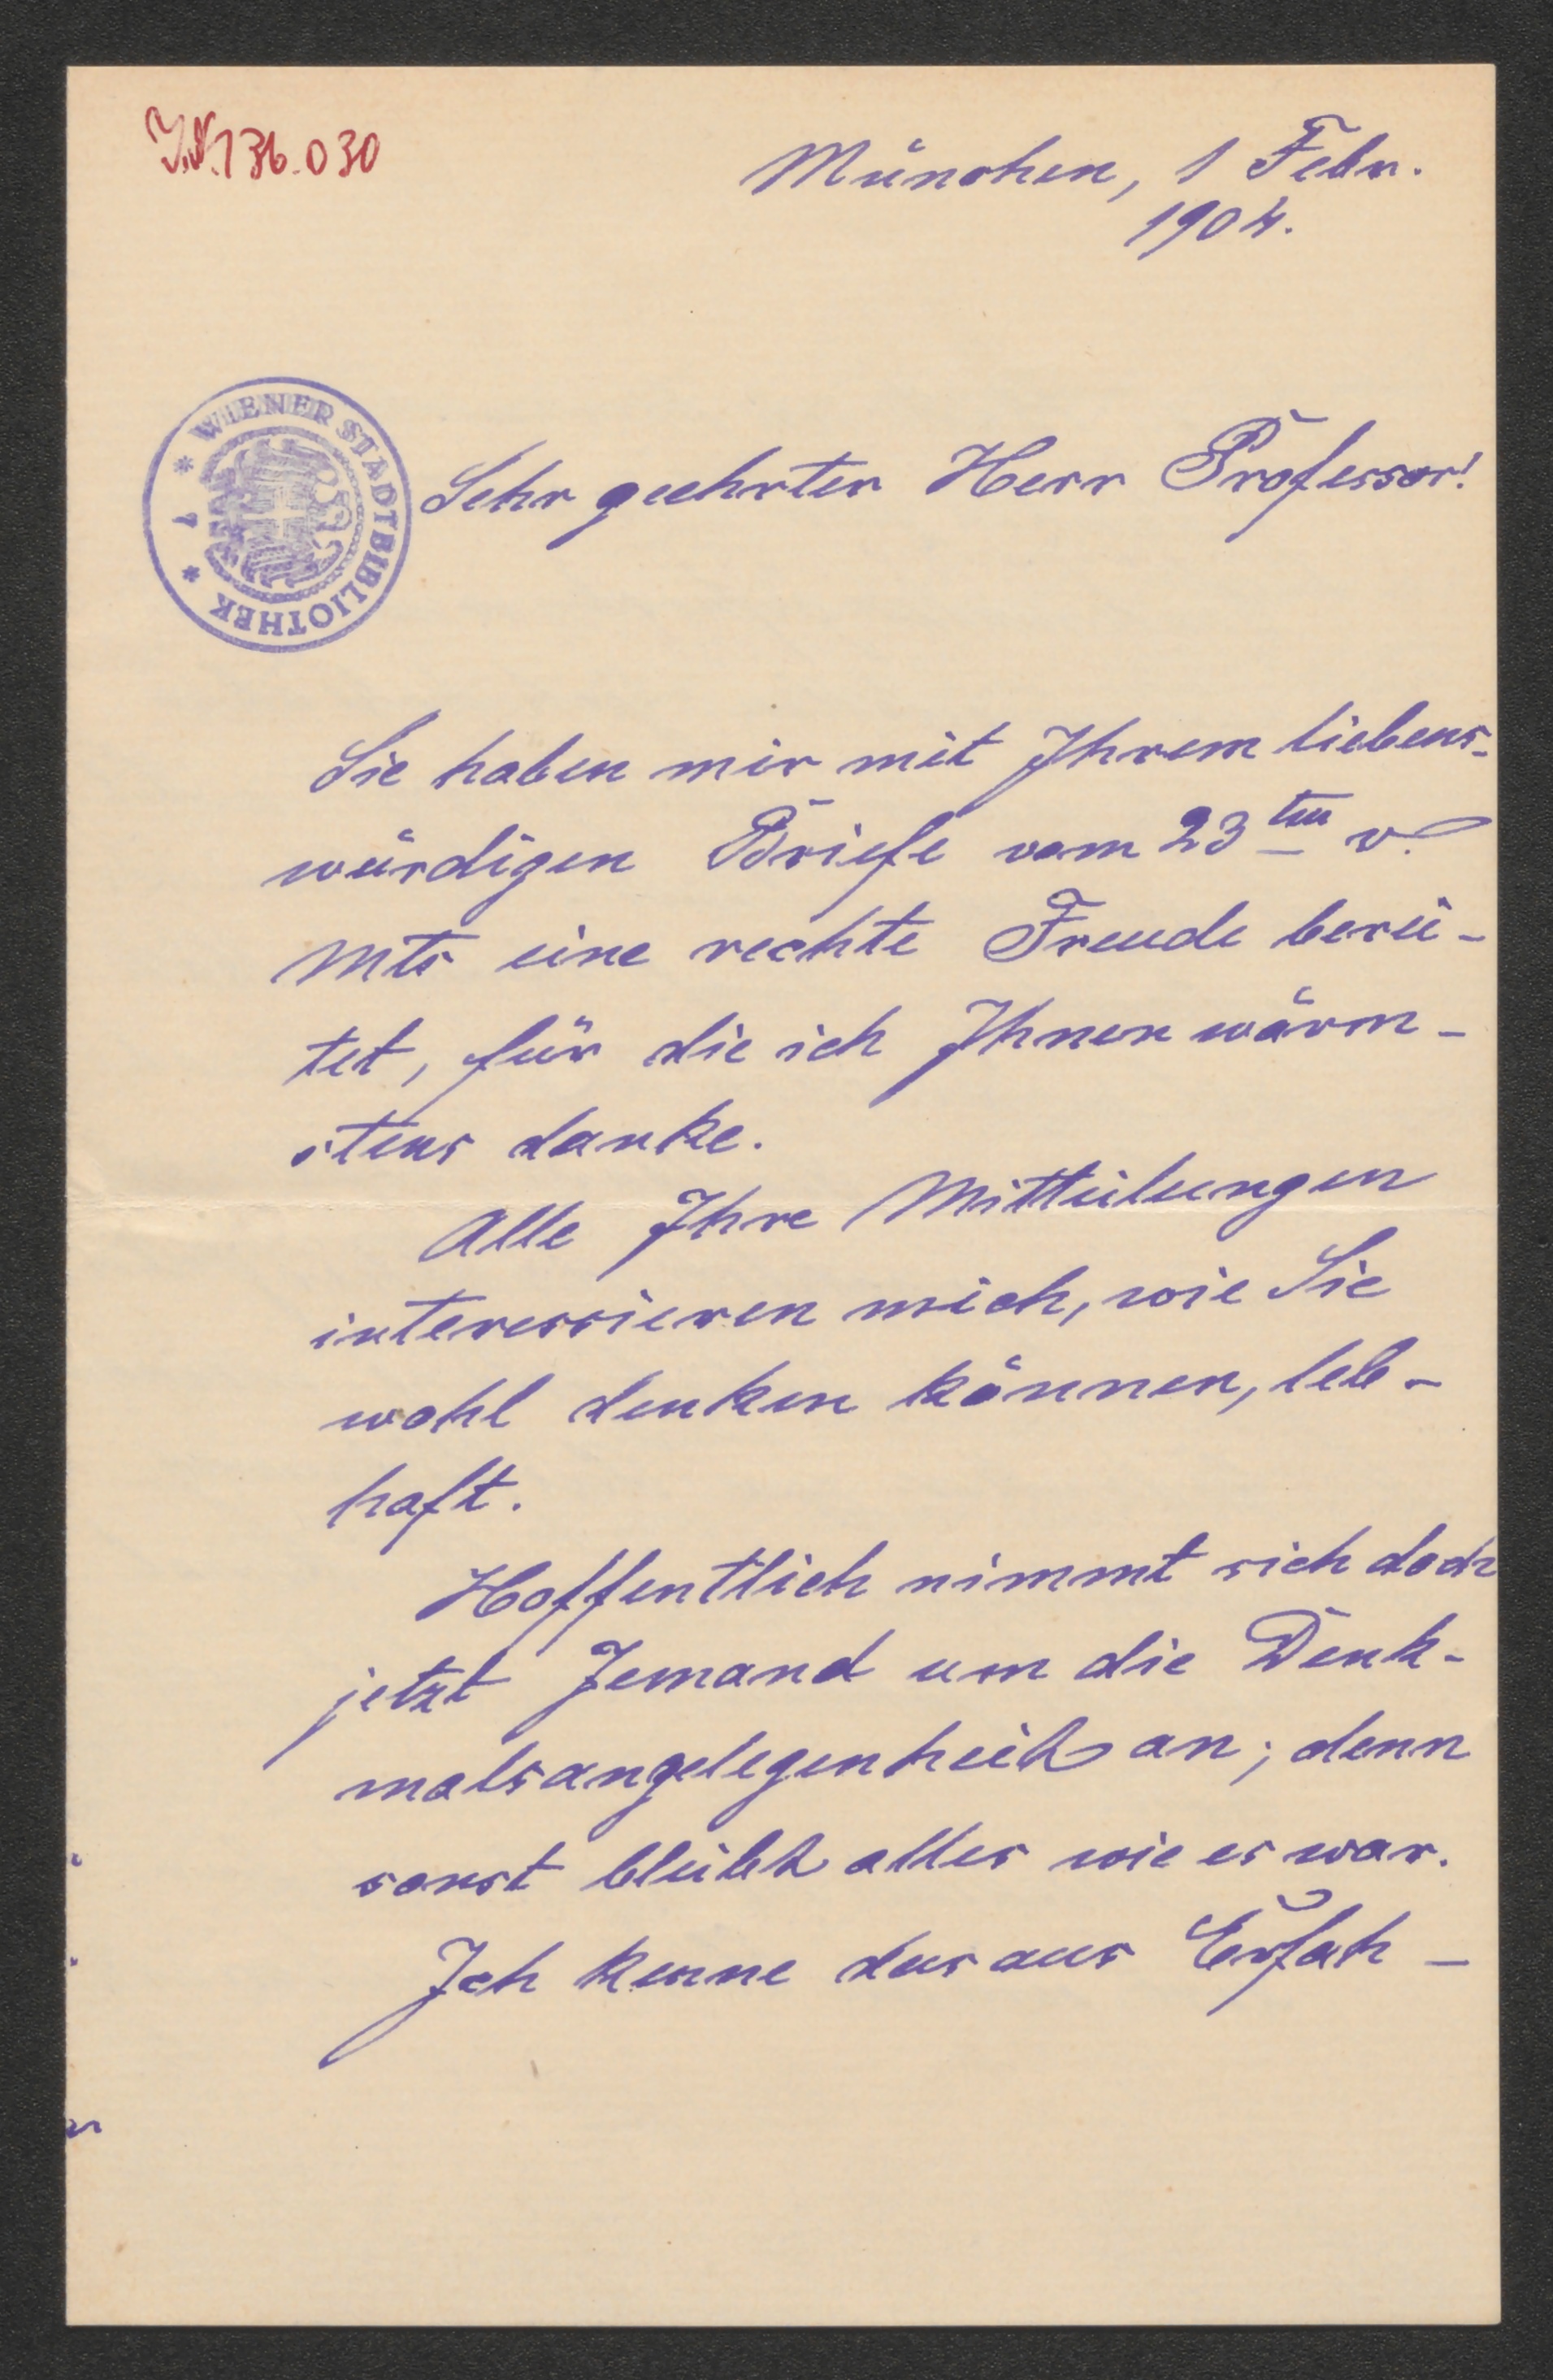 J.N.136.030
München, 1 Febr.
1904.
WIENER STADTBIBLIOTHEK
* 7 *
Sehr geehrter Herr Professor!
Sie haben mir mit Ihrem liebens-
würdigen Briefe vom 23ten v.
Mts eine rechte Freude berei-
tet, für die ich Ihnen wärm-
stens danke.
Alle Ihre Mitteilungen
interessieren mich, wie Sie
wohl denken können, leb-
haft.
Hoffentlich nimmt sich doch
jetzt Jemand um die Denk-
malsangelegenheit an; denn
sonst bleibt alles wie es war.
Ich kenne das aus Erfah-